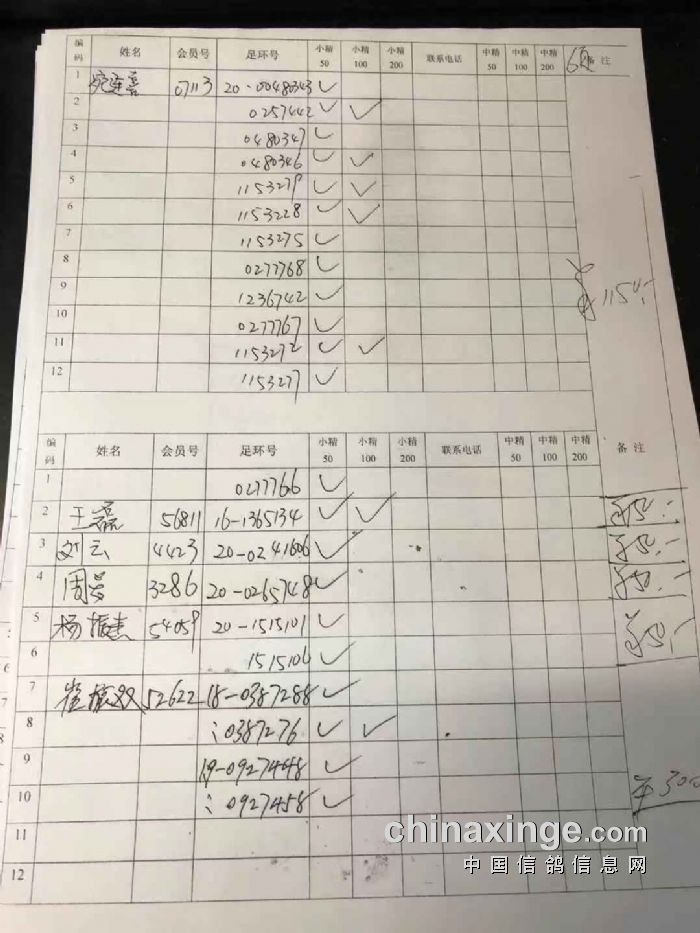 编码 姓名 会员号 足环号 小精50 小精100 小精200 联系电话 中精50 中精100 中精200 备注
1 07113 20-00480343 ✓
2 0257442 ✓ ✓
3 0480347 ✓
4 0480346 ✓ ✓
5 1153279 ✓ ✓
6 1153228 ✓ ✓
7 1153275 ✓
8 0277768 ✓
9 1236742 ✓
10 0277767 ✓
11 1153272 ✓ ✓
12 1153277 ✓
编码 姓名 会员号 足环号 小精50 小精100 小精200 联系电话 中精50 中精100 中精200 备注
1 0277766 ✓
2 王磊 56811 16-1365134 ✓ ✓
3 刘云 4423 20-0241606 ✓
4 周 3286 20-0265748 ✓
5 杨振 54059 20-1515101 ✓
6 1515106 ✓
7 崔振双 52622 18-0387288 ✓
8 : 0387276 ✓ ✓
9 19-0927448 ✓
10 : 0927458 ✓
300
11
12
chinaxinge.com
中国信鸽信息网